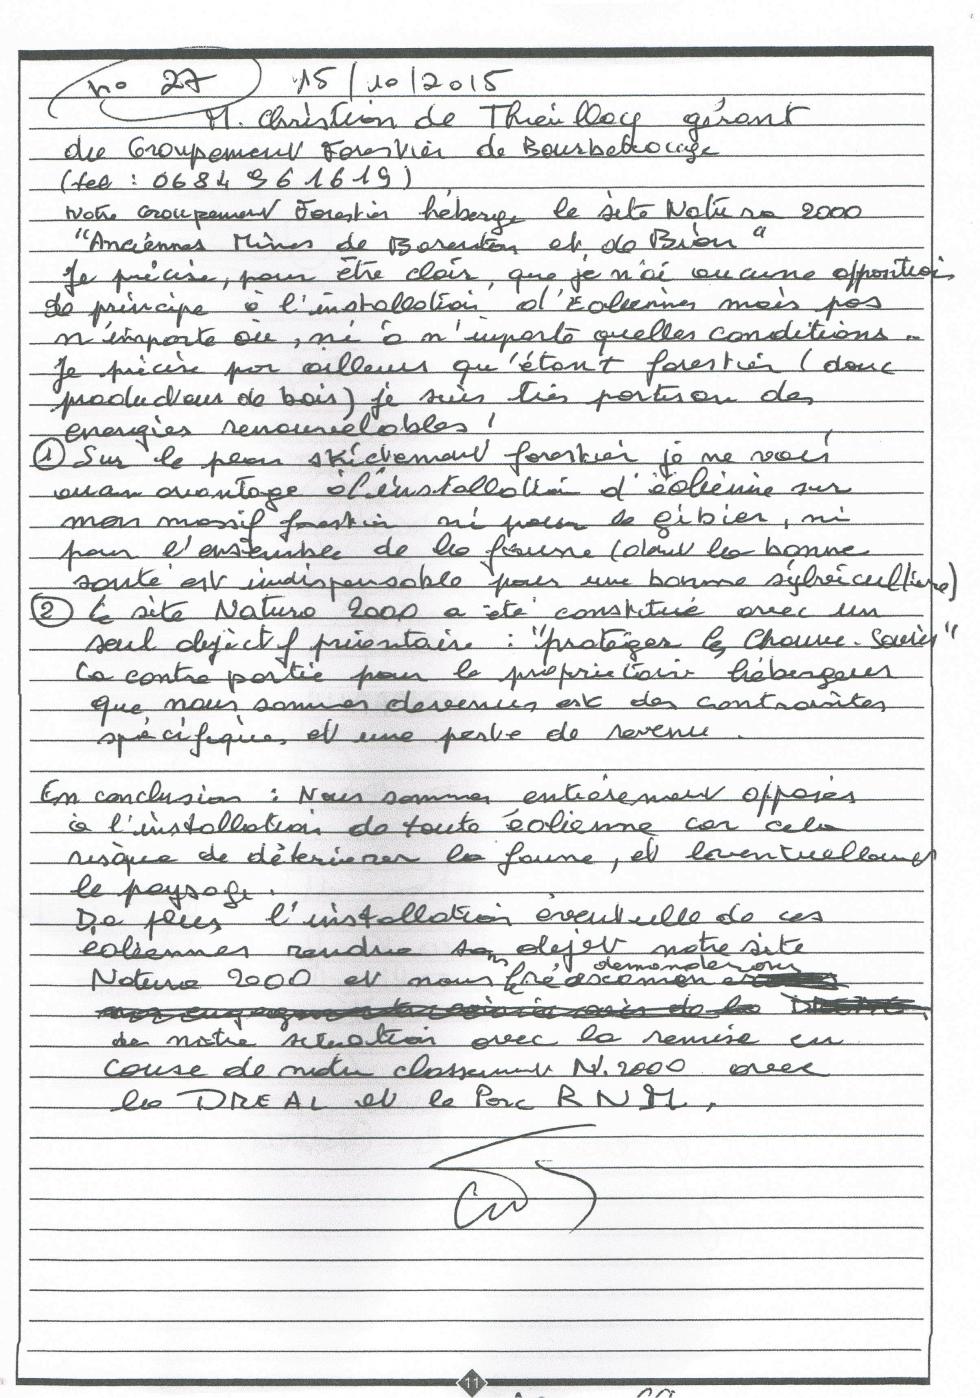 no 27 15/10/2015
M. Christian de Thieulloy gérant
du Groupement Forestier de Bourberouge
(tel : 0684961619)
Notre Groupement Forestier héberge le site Natura 2000
"Anciennes Mines de Barenton et de Bion"
Je précise, pour être clair, que je n'ai aucune opposition
de principe à l'installation d'Eoliennes mais pas
n'importe où, ni à n'importe quelles conditions..
Je précise par ailleurs qu'étant forestier (donc
producteur de bois) je suis très partisan des
energies renouvelables !
① Sur le plan strictement forestier je ne vois
aucun avantage à l'installation d'éolienne sur
mon massif forestier ni pour le gibier, ni
pour l'ensemble de la faune (dont la bonne
santé est indispensable pour une bonne sylviculture)
② Le site Natura 2000 a été constitué avec un
seul objectif prioritaire : "protéger les Chauve-Souris"
La contre partie pour le propriétaire hébergeur
que nous sommes devenus est des contraintes
spécifiques et une perte de revenu.
En conclusion : Nous sommes entièrement opposés
à l'installation de toute éolienne car cela
risque de déteriorer la faune, et
le paysage.
De plus l'installation éventuelle de ces
eoliennes rendra sans objet notre site
Natura 2000 et nous demanderons
de notre situation avec la remise en
cause de notre classement N.2000 avec
la DREAL et le Parc RNM.
11